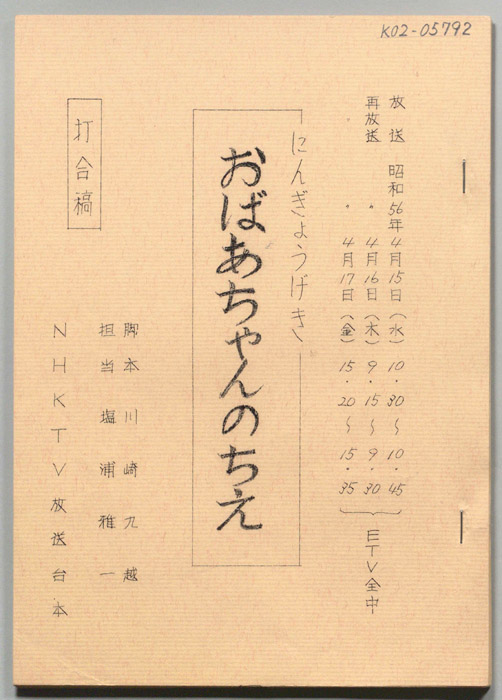 K02-05792
放送 昭和56年4月15日(水) 10・30〜10・45
再放送 〃 4月16日(木) 9・15〜9・30
〃 4月17日(金) 15・20〜15・35
ETV全中
にんぎょうげき
おばあちゃんのちえ
打合稿
脚本 川崎九越
担当 塩浦雅一
NHKTV放送台本